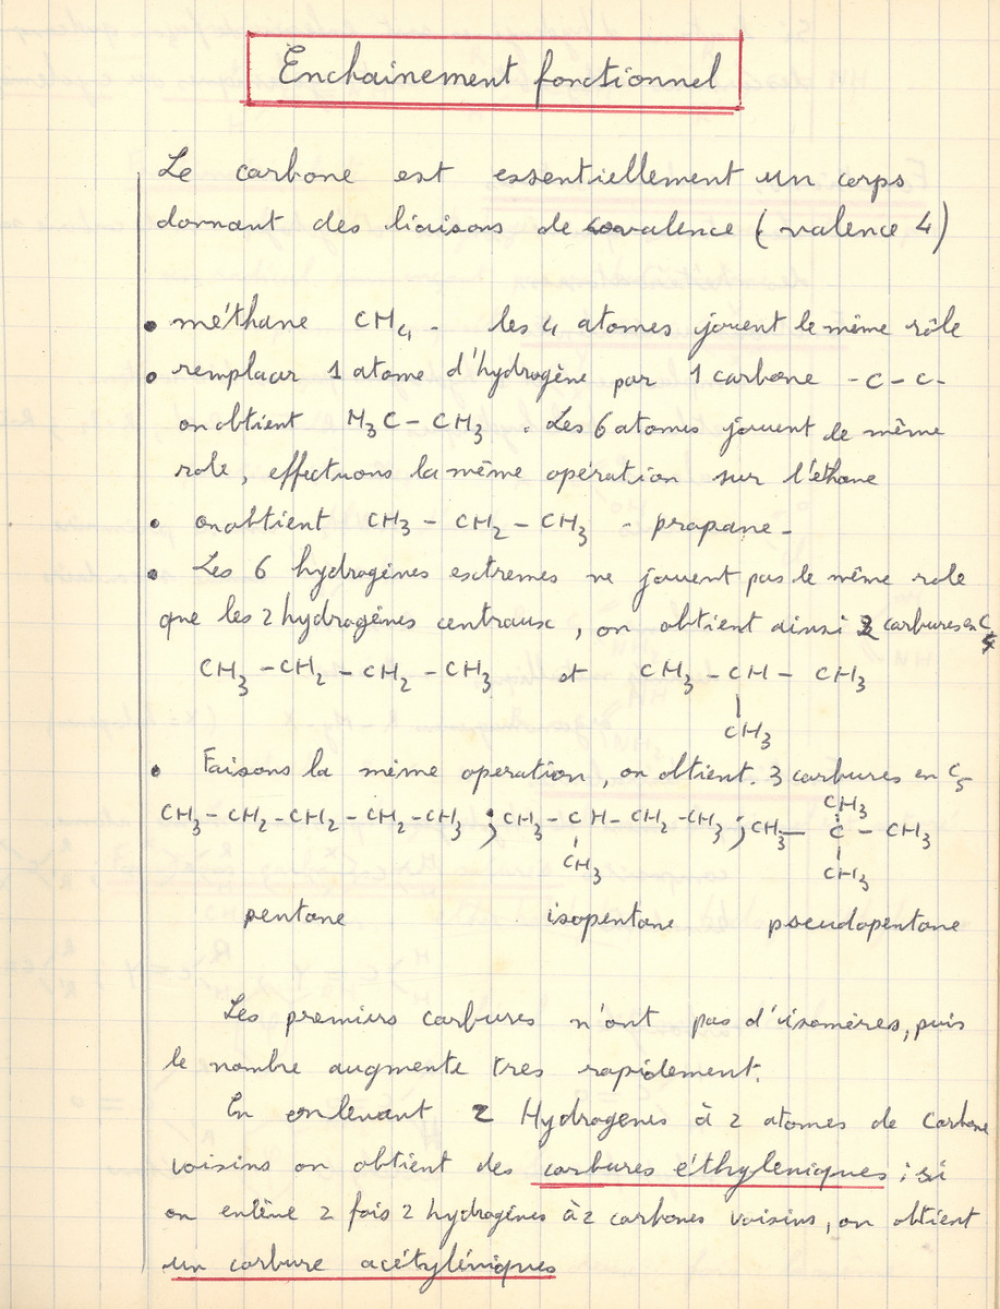 Enchainement fonctionnel
Le carbone est essentiellement un corps
donnant des liaisons de covalence (valence 4)
• méthane CH₄ - les 4 atomes jouent le même rôle
• remplacer 1 atome d'hydrogène par 1 carbone -C-C-
on obtient H₃C - CH₃ . Les 6 atomes jouent le même
role, effectuons la même opération sur l'éthane
• on obtient CH₃ - CH₂ - CH₃ - propane -
• Les 6 hydrogènes extremes ne jouent pas le même role
que les 2 hydrogènes centraux, on obtient ainsi 2 carbures en C₄
CH₃ - CH₂ - CH₂ - CH₃ et CH₃ - CH - CH₃
|
CH₃
• Faisons la même operation, on obtient. 3 carbures en C₅
CH₃
CH₃ - CH₂ - CH₂ - CH₂ - CH₃ ; CH₃ - CH - CH₂ - CH₃ ; CH₃ - C - CH₃
CH₃ CH₃
pentane isopentane pseudopentane
Les premiers carbures n'ont pas d'isomères, puis
le nombre augmente tres rapidement.
En enlevant 2 Hydrogenes à 2 atomes de Carbone
voisins on obtient des carbures éthyleniques ; si
on enlève 2 fois 2 hydrogènes à 2 carbones voisins, on obtient
un carbure acétyléniques